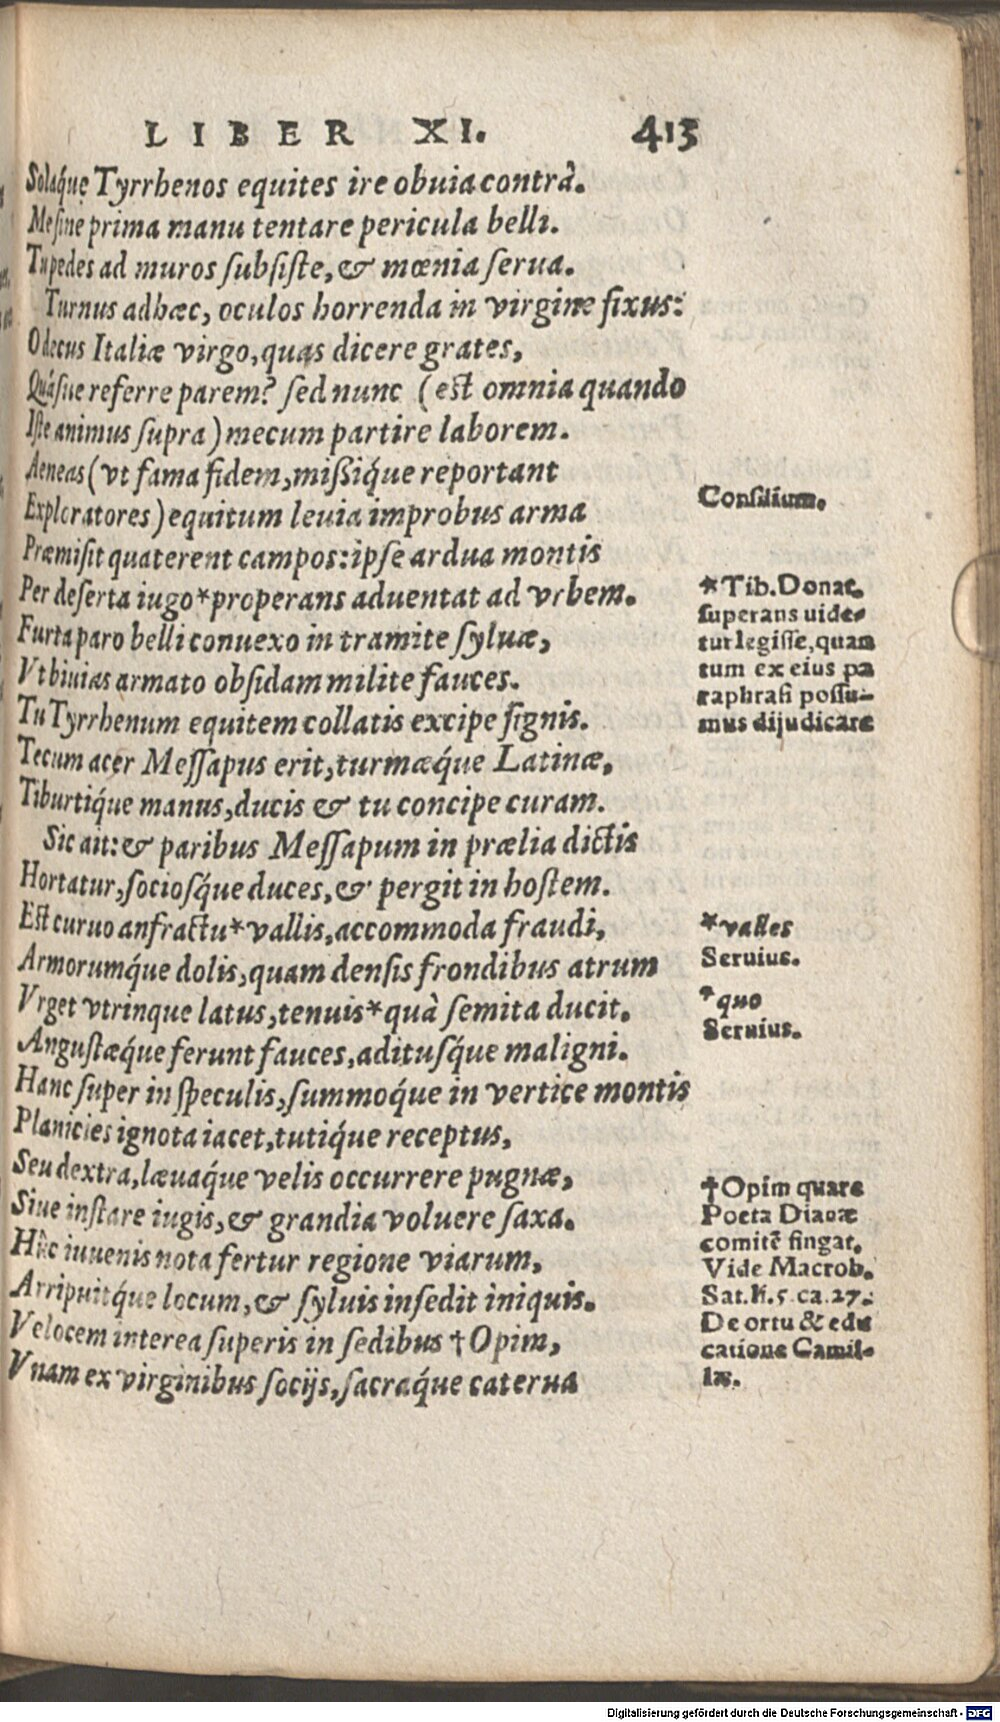 LIBER XI. 413
Solaq́ue Tyrrhenos equites ire obuia contrà.
Me sine prima manu tentare pericula belli.
Tu pedes ad muros subsiste, & mœnia serua.
Turnus ad hæc, oculos horrenda in virgine fixus:
O decus Italiæ virgo, quas dicere grates,
Quásue referre parem? sed nunc (est omnia quando
Iste animus supra) mecum partire laborem.
Aeneas (vt fama fidem, missiq́ue reportant
Exploratores) equitum leuia improbus arma
Præmisit quaterent campos: ipse ardua montis
Per deserta iugo*properans aduentat ad vrbem.
Furta paro belli conuexo in tramite syluæ,
Vt biuias armato obsidam milite fauces.
Tu Tyrrhenum equitem collatis excipe signis.
Tecum acer Messapus erit, turmæq́ue Latinæ,
Tiburtiq́ue manus, ducis & tu concipe curam.
Sic ait: & paribus Messapum in prælia dictis
Hortatur, sociosq́ue duces, & pergit in hostem.
Est curuo anfractu*vallis, accommoda fraudi,
Armorumq́ue dolis, quam densis frondibus atrum
Vrget vtrinque latus, tenuis*quà semita ducit.
Angustæq́ue ferunt fauces, aditusq́ue maligni.
Hanc super in speculis, summoq́ue in vertice montis
Planicies ignota iacet, tutiq́ue receptus,
Seu dextra, læuaq́ue velis occurrere pugnæ,
Siue instare iugis, & grandia voluere saxa.
Hûc iuuenis nota fertur regione viarum,
Arripuitq́ue locum, & syluis insedit iniquis.
Velocem interea superis in sedibus †Opim,
Vnam ex virginibus socijs, sacraq́ue caterua
Consilium.
*Tib. Donat.
superans uide-
tur legisse, quan
tum ex eius pa
raphrasi possu-
mus dijudicare
*valles
Seruius.
*quo
Seruius.
†Opim quare
Poeta Dianæ
comitẽ fingat,
Vide Macrob.
Sat. li. 5 ca. 27.
De ortu & edu
catione Camil-
læ.
Digitalisierung gefördert durch die Deutsche Forschungsgemeinschaft - DFG